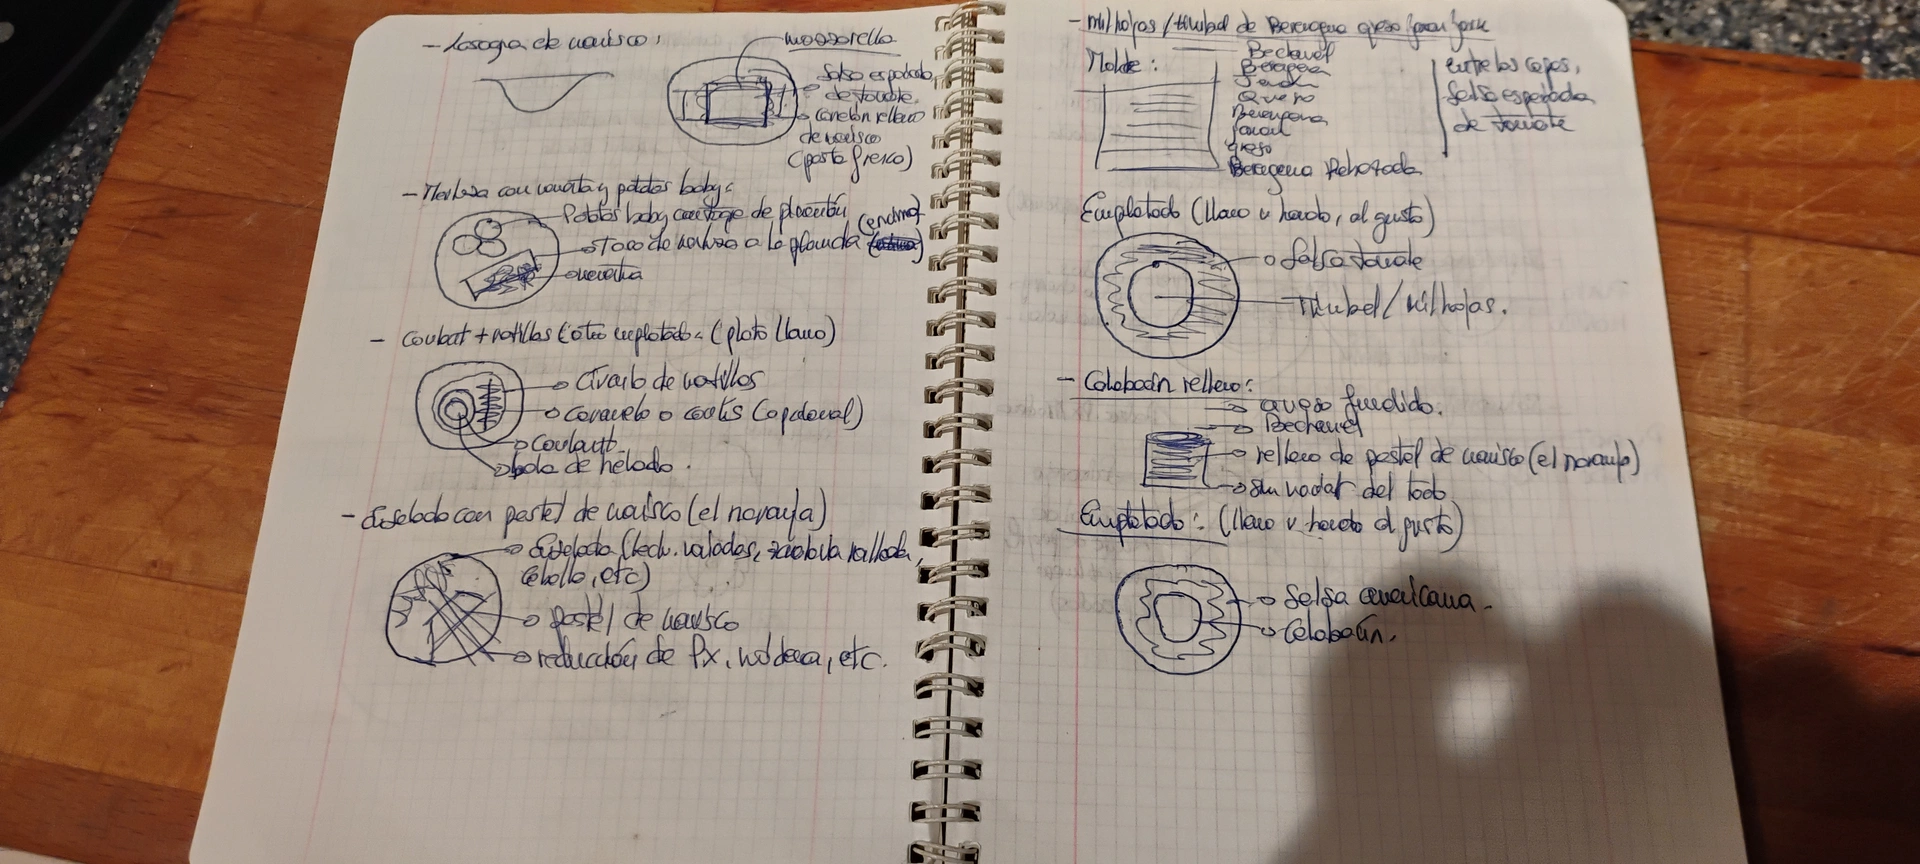 - Lasagna de marisco:
mozzarella
Salsa especiada
de tomate
Canelón relleno
de marisco
(pasta fresca)
- Merluza con muselina y patatas baby:
Patatas baby de pimentón
Taco de merluza a la plancha (encima)
- Coulant + natillas (otro emplatado: (plato llano)
Círculo de natillas
Caramelo o cookies (opcional)
Coulant
bola de helado.
- Ensalada con pastel de marisco (el naranja)
Ensalada (lech. variadas, zanahoria rallada,
Cebolla, etc)
pastel de marisco
reducción de Px, módena, etc.
- milhojas / timbal de Berengena queso jamon york
Molde:
Bechamel
Berengena
Jamon
Queso
Berengena
Jamon
queso
Berengena Rebozada
entre las capas,
Salsa especiada
de tomate
Emplatado (llano u hondo, al gusto)
Salsa tomate
Timbal / milhojas.
- Calabacín relleno:
queso fundido.
Bechamel
relleno de pastel de marisco (el naranja)
Sin vaciar del todo
Emplatado: (llano u hondo al gusto)
Salsa americana.
Calabacín.